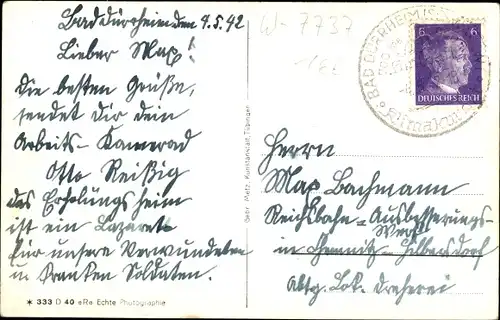 Bad Dürrheim den 4.5.42
Lieber Max!
Die besten Grüße,
sendet Dir dein
Arbeits-Kamerad
Otto Reißig
das Erholungsheim
ist ein Lazarett
für unsere Verwundeten
in Kranken Soldaten.
W-7737
BAD DÜRRHEIM
6
DEUTSCHES REICH
Herrn
Max Bachmann
Reichsbahn-Ausbesserungs-
Werk
in Chemnitz-Hilbersdorf
Abtg. Lok. Dreherei
Gebr. Metz, Kunstanstalt, Tübingen
* 333 D 40 eRe Echte Photographie